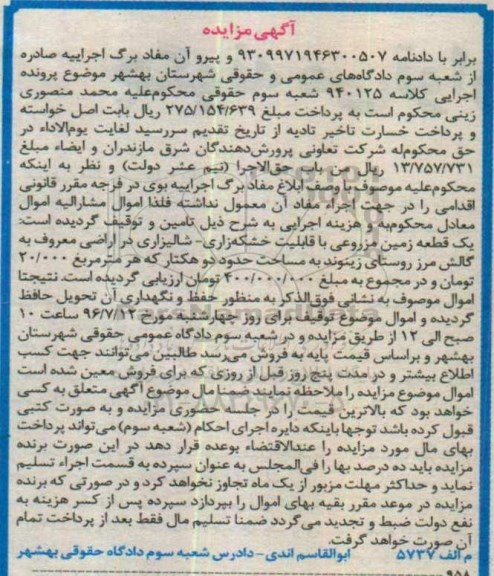 آگهی مزایده
برابر با دادنامه ۹۳۰۹۹۷۱۹۴۶۳۰۰۵۰۷ و پیرو آن مفاد برگ اجراییه صادره
از شعبه سوم دادگاه‌های عمومی و حقوقی شهرستان بهشهر موضوع پرونده
اجرایی کلاسه ۹۴۰۱۲۵ شعبه سوم حقوقی محکوم‌علیه محمد منصوری
زینی محکوم است به پرداخت مبلغ ۲۷۵/۱۵۴/۶۳۹ ریال بابت اصل خواسته
و پرداخت خسارت تاخیر تادیه از تاریخ تقدیم سررسید لغایت یوم‌الاداء در
حق محکوم‌له شرکت تعاونی پرورش‌دهندگان شرق مازندران و ایضاء مبلغ
۱۳/۷۵۷/۷۳۱ ریال من بابت حق‌الاجرا (نیم عشر دولت) و نظر به اینکه
محکوم‌علیه موصوف با وصف ابلاغ مفاد برگ اجراییه بوی در فرجه مقرر قانونی
اقدامی را در جهت اجراء مفاد آن معمول نداشته فلذا اموال مشارالیه اموال
معادل محکوم‌به و هزینه اجرایی به شرح ذیل تامین و توقیف گردیده است:
یک قطعه زمین مزروعی با قابلیت خشکه‌زاری- شالیزاری در اراضی معروف به
گالش مرز روستای زینوند به مساحت حدود دو هکتار که هر متر مربع ۲۰/۰۰۰
تومان و در مجموع به مبلغ ۴۰۰/۰۰۰/۰۰۰ تومان ارزیابی گردیده است. نتیجتا
اموال موصوف به نشانی فوق‌الذکر به منظور حفظ و نگهداری آن تحویل حافظ
گردیده و اموال موضوع توقیف برای روز چهارشنبه مورخ ۹۶/۷/۱۲ ساعت ۱۰
صبح الی ۱۲ از طریق مزایده و در شعبه سوم دادگاه عمومی حقوقی شهرستان
بهشهر و براساس قیمت پایه به فروش می‌رسد طالبین می‌توانند جهت کسب
اطلاع بیشتر و در مدت پنج روز قبل از روزی که برای فروش معین شده است
اموال موضوع مزایده را ملاحظه نمایند ضمنا مال موضوع آگهی متعلق به کسی
خواهد بود که بالاترین قیمت را در جلسه حضوری مزایده و به صورت کتبی
قبول کرده باشد توجها باینکه دایره اجرای احکام (شعبه سوم) می‌تواند پرداخت
بهای مال مورد مزایده را عندالاقتضاء بوعده قرار دهد در این صورت برنده
مزایده باید ده درصد بها را فی‌المجلس به عنوان سپرده به قسمت اجراء تسلیم
نماید و حداکثر مهلت مزبور از یک ماه تجاوز نخواهد کرد و در صورتی که برنده
مزایده در موعد مقرر بقیه بهای اموال را بپردازد سپرده پس از کسر هزینه به
نفع دولت ضبط و تجدید می‌گردد ضمنا تسلیم مال فقط بعد از پرداخت تمام
آن صورت خواهد گرفت.
م الف ۵۷۳۷ ابوالقاسم اندی- دادرس شعبه سوم دادگاه حقوقی بهشهر
۹۵۸